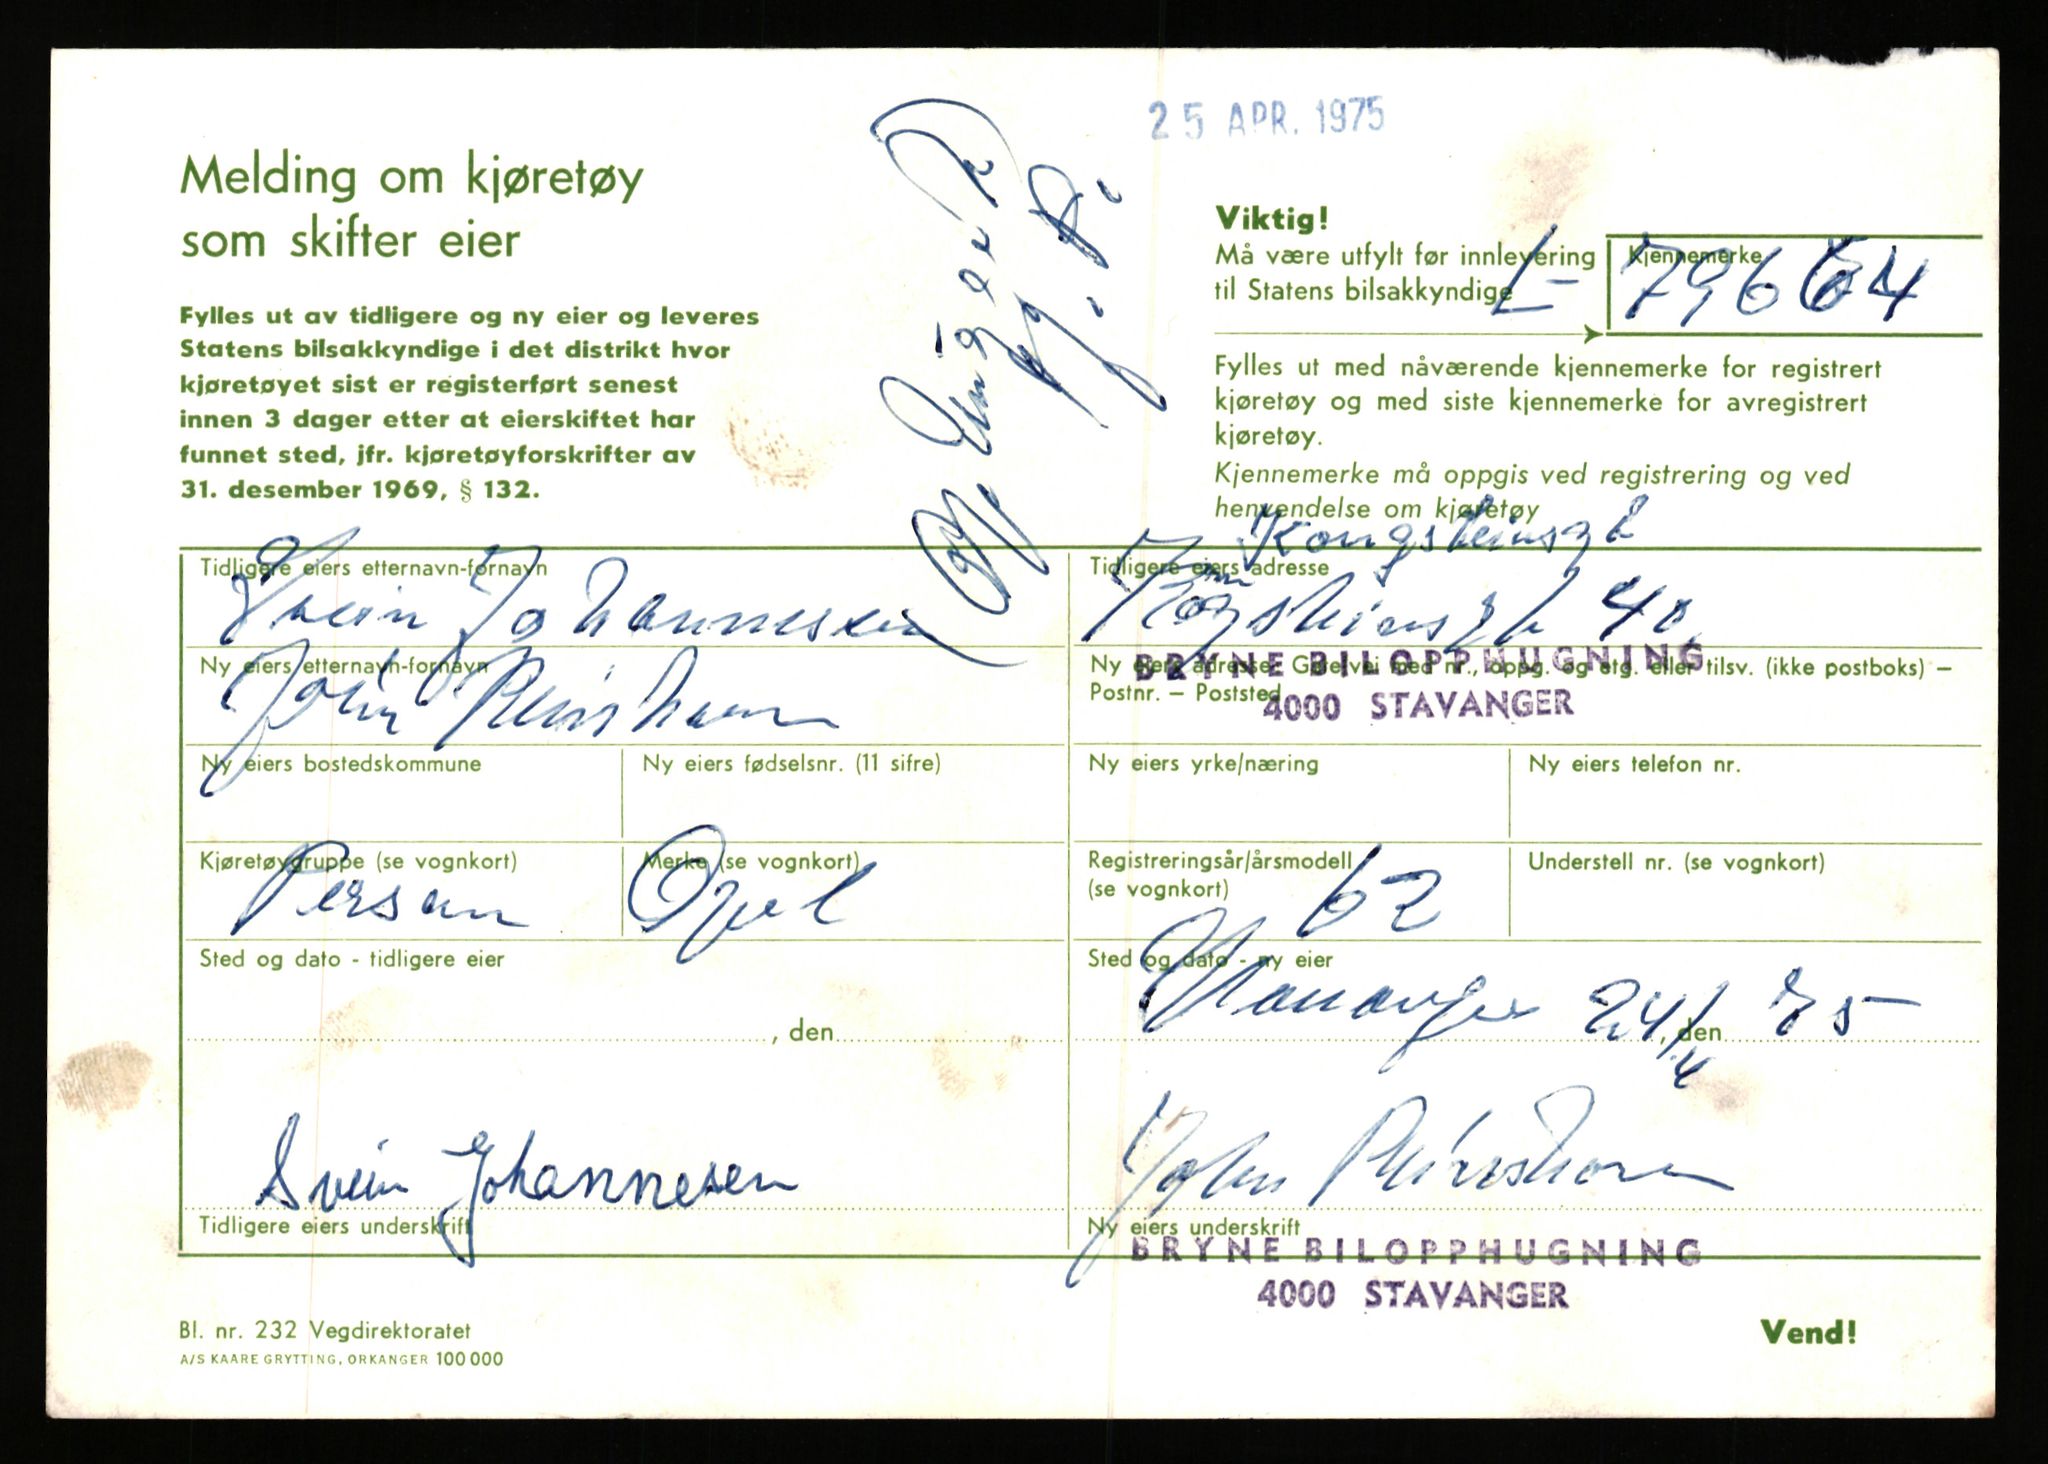 25 APR. 1975
Melding om kjøretøy
som skifter eier
Fylles ut av tidligere og ny eier og leveres
Statens bilsakkyndige i det distrikt hvor
kjøretøyet sist er registerført senest
innen 3 dager etter at eierskiftet har
funnet sted, jfr. kjøretøyforskrifter av
31. desember 1969, § 132.
Viktig!
Må være utfylt før innlevering
til Statens bilsakkyndige
Kjennemerke
L- 79664
Fylles ut med nåværende kjennemerke for registrert
kjøretøy og med siste kjennemerke for avregistrert
kjøretøy.
Kjennemerke må oppgis ved registrering og ved
henvendelse om kjøretøy
Tidligere eiers etternavn-fornavn
Svein Johannesen
Tidligere eiers adresse
Kongsteinsgt
40
Ny eiers etternavn-fornavn
John
Ny eiers adresse: Gate/vei med nr., oppg. og etg. eller tilsv. (ikke postboks) –
Postnr. – Poststed
BRYNE BILOPPHUGNING
4000 STAVANGER
Ny eiers bostedskommune
Ny eiers fødselsnr. (11 sifre)
Ny eiers yrke/næring
Ny eiers telefon nr.
Kjøretøygruppe (se vognkort)
Person
Merke (se vognkort)
Opel
Registreringsår/årsmodell
(se vognkort)
62
Understell nr. (se vognkort)
Sted og dato - tidligere eier
, den
Sted og dato - ny eier
Stavanger 24/4, den 75
Svein Johannesen
Tidligere eiers underskrift
John
Ny eiers underskrift
BRYNE BILOPPHUGNING
4000 STAVANGER
Bl. nr. 232 Vegdirektoratet
A/S KAARE GRYTTING, ORKANGER 100 000
Vend!